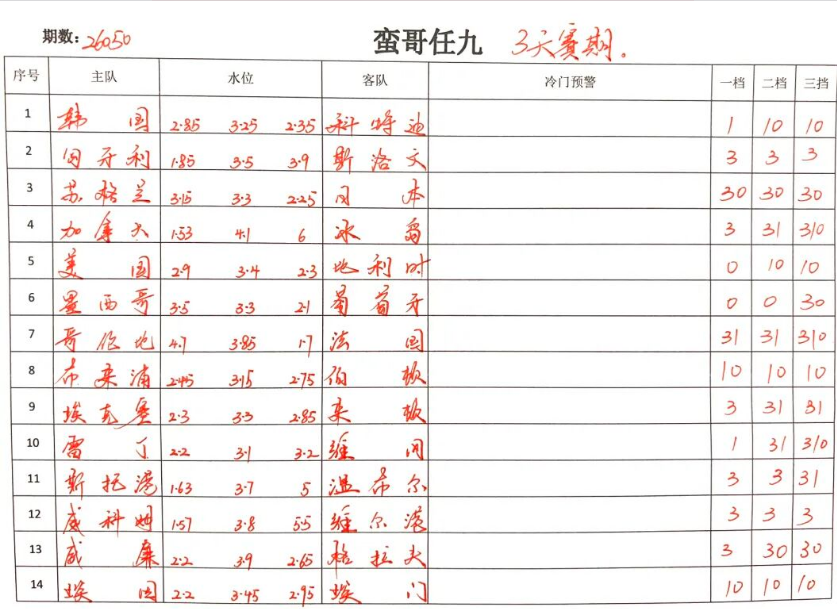 期数: 26050 蛮哥任九 3天赛期.
序号 主队 水位 客队 冷门预警 一档 二档 三挡
1 韩国 2.85 3.25 2.35 科特迪 1 10 10
2 匈牙利 1.85 3.5 3.9 斯洛文 3 3 3
3 苏格兰 3.15 3.3 2.25 日本 30 30 30
4 加拿大 1.53 4.1 6 冰岛 3 31 310
5 美国 2.9 3.4 2.3 比利时 0 10 10
6 墨西哥 3.5 3.3 2.1 葡萄牙 0 0 30
7 哥伦比 4.7 3.85 1.7 法国 31 31 310
8 布莱浦 2.45 3.15 2.75 伯顿 10 10 10
9 埃克塞 2.3 3.3 2.85 莱顿 3 31 31
10 雷丁 2.2 3.1 3.2 维冈 1 31 310
11 斯托港 1.63 3.7 5 温布尔 3 3 31
12 威科姆 1.57 3.8 5.5 维尔港 3 3 3
13 威廉 2.2 3.9 2.65 格拉夫 3 30 30
14 埃因 2.2 3.45 2.95 埃门 10 10 10